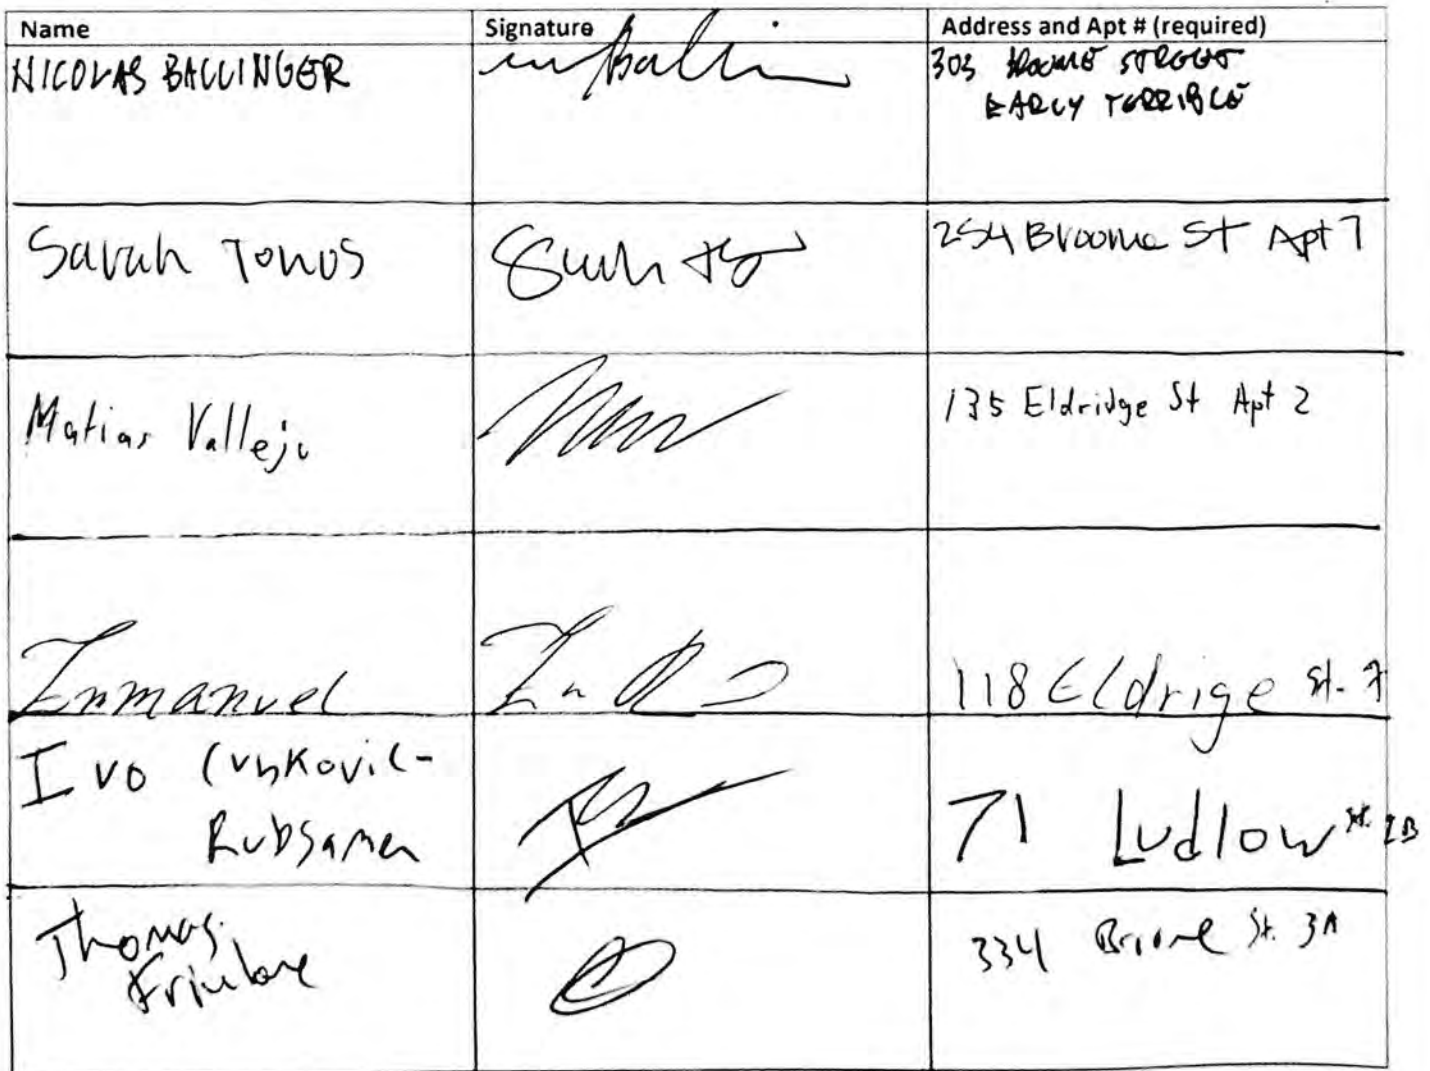 Name Signature Address and Apt # (required)
NICOLAS BALLINGER 303 BROOME STREET
EARLY TERRIBLE
Sarah Tonos 254 Broome St Apt 7
Matias Vallejo 135 Eldridge St Apt 2
Enmanuel 118 Eldrige St. 7
Ivo
Rubsamen 71 Ludlow St. 2B
Thomas 334 Broome St. 3A